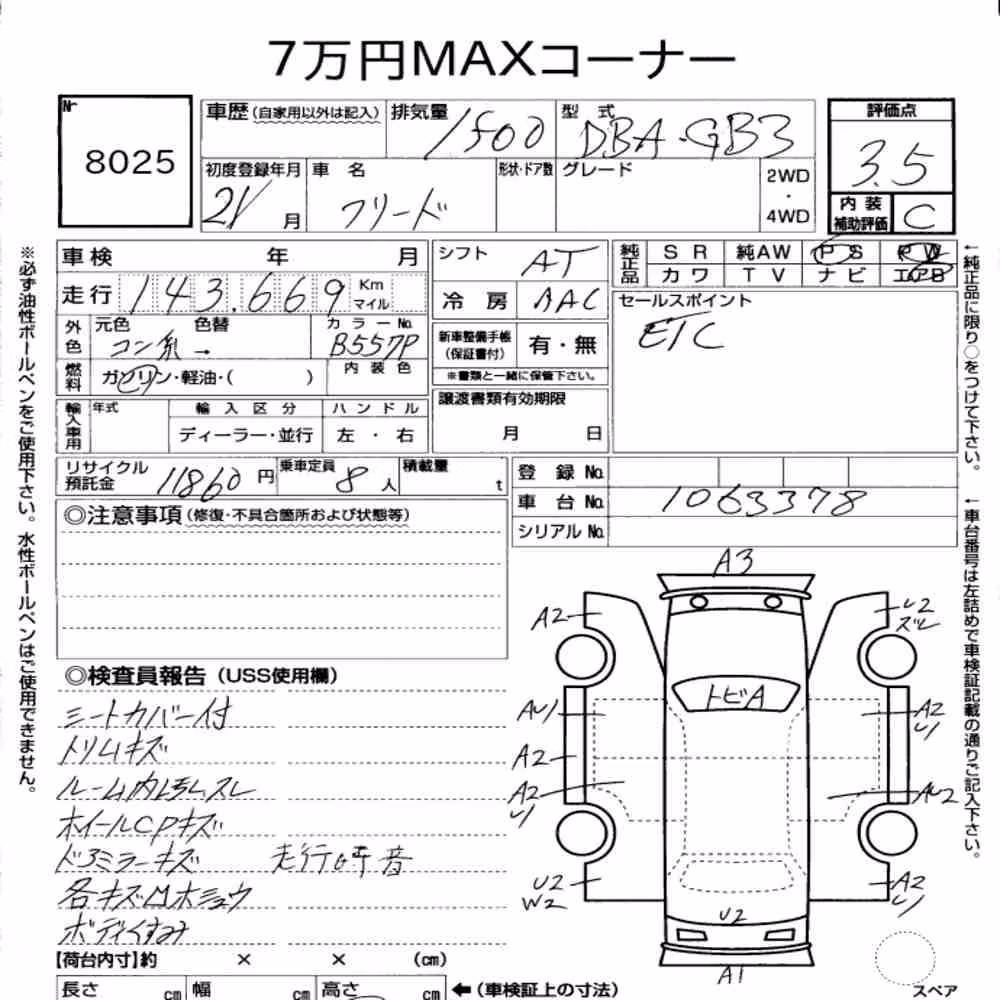 7万円MAXコーナー
Nr
8025
車歴（自家用以外は記入） 排気量 1500 型式 DBA-GB3
評価点
3.5
初度登録年月 21 月 車名 フリード 形状・ドア数 グレード 2WD・4WD
内装補助評価 C
車検 年 月
走行 143,669 Km マイル
シフト AT
冷房 AAC
純正品 SR 純AW PS PW
カワ TV ナビ エアB
外色 元色 色替 カラーNo.
コン系 → B557P
燃料 ガソリン・軽油・( ) 内装色
新車整備手帳（保証書付） 有・無
※書類と一緒に保管下さい。
セールスポイント
ETC
輸入車用 年式 輸入区分 ハンドル
ディーラー・並行 左・右
譲渡書類有効期限
月 日
リサイクル預託金 11860 円 乗車定員 8 人 積載量 t
登録No.
車台No. 1063378
シリアルNo.
◎注意事項（修復・不具合箇所および状態等）
◎検査員報告（USS使用欄）
シートカバー付
トリムキズ
ルーム内ヨゴレスレ
ホイールCPキズ
ドアミラーキズ 走行時音
各キズ凹ホシュウ
ボディくすみ
A3
A2
U2
ズレ
トビA
AU1
A2
U1
A2
A2
U1
AU2
U2
W2
A2
U1
U2
A1
スペア
【荷台内寸】約 × × (cm)
長さ cm 幅 cm 高さ cm ←（車検証上の寸法）
※必ず油性ボールペンをご使用下さい。水性ボールペンはご使用できません。
←純正品に限り○をつけて下さい。
←車台番号は左詰めで車検証記載の通りご記入下さい。